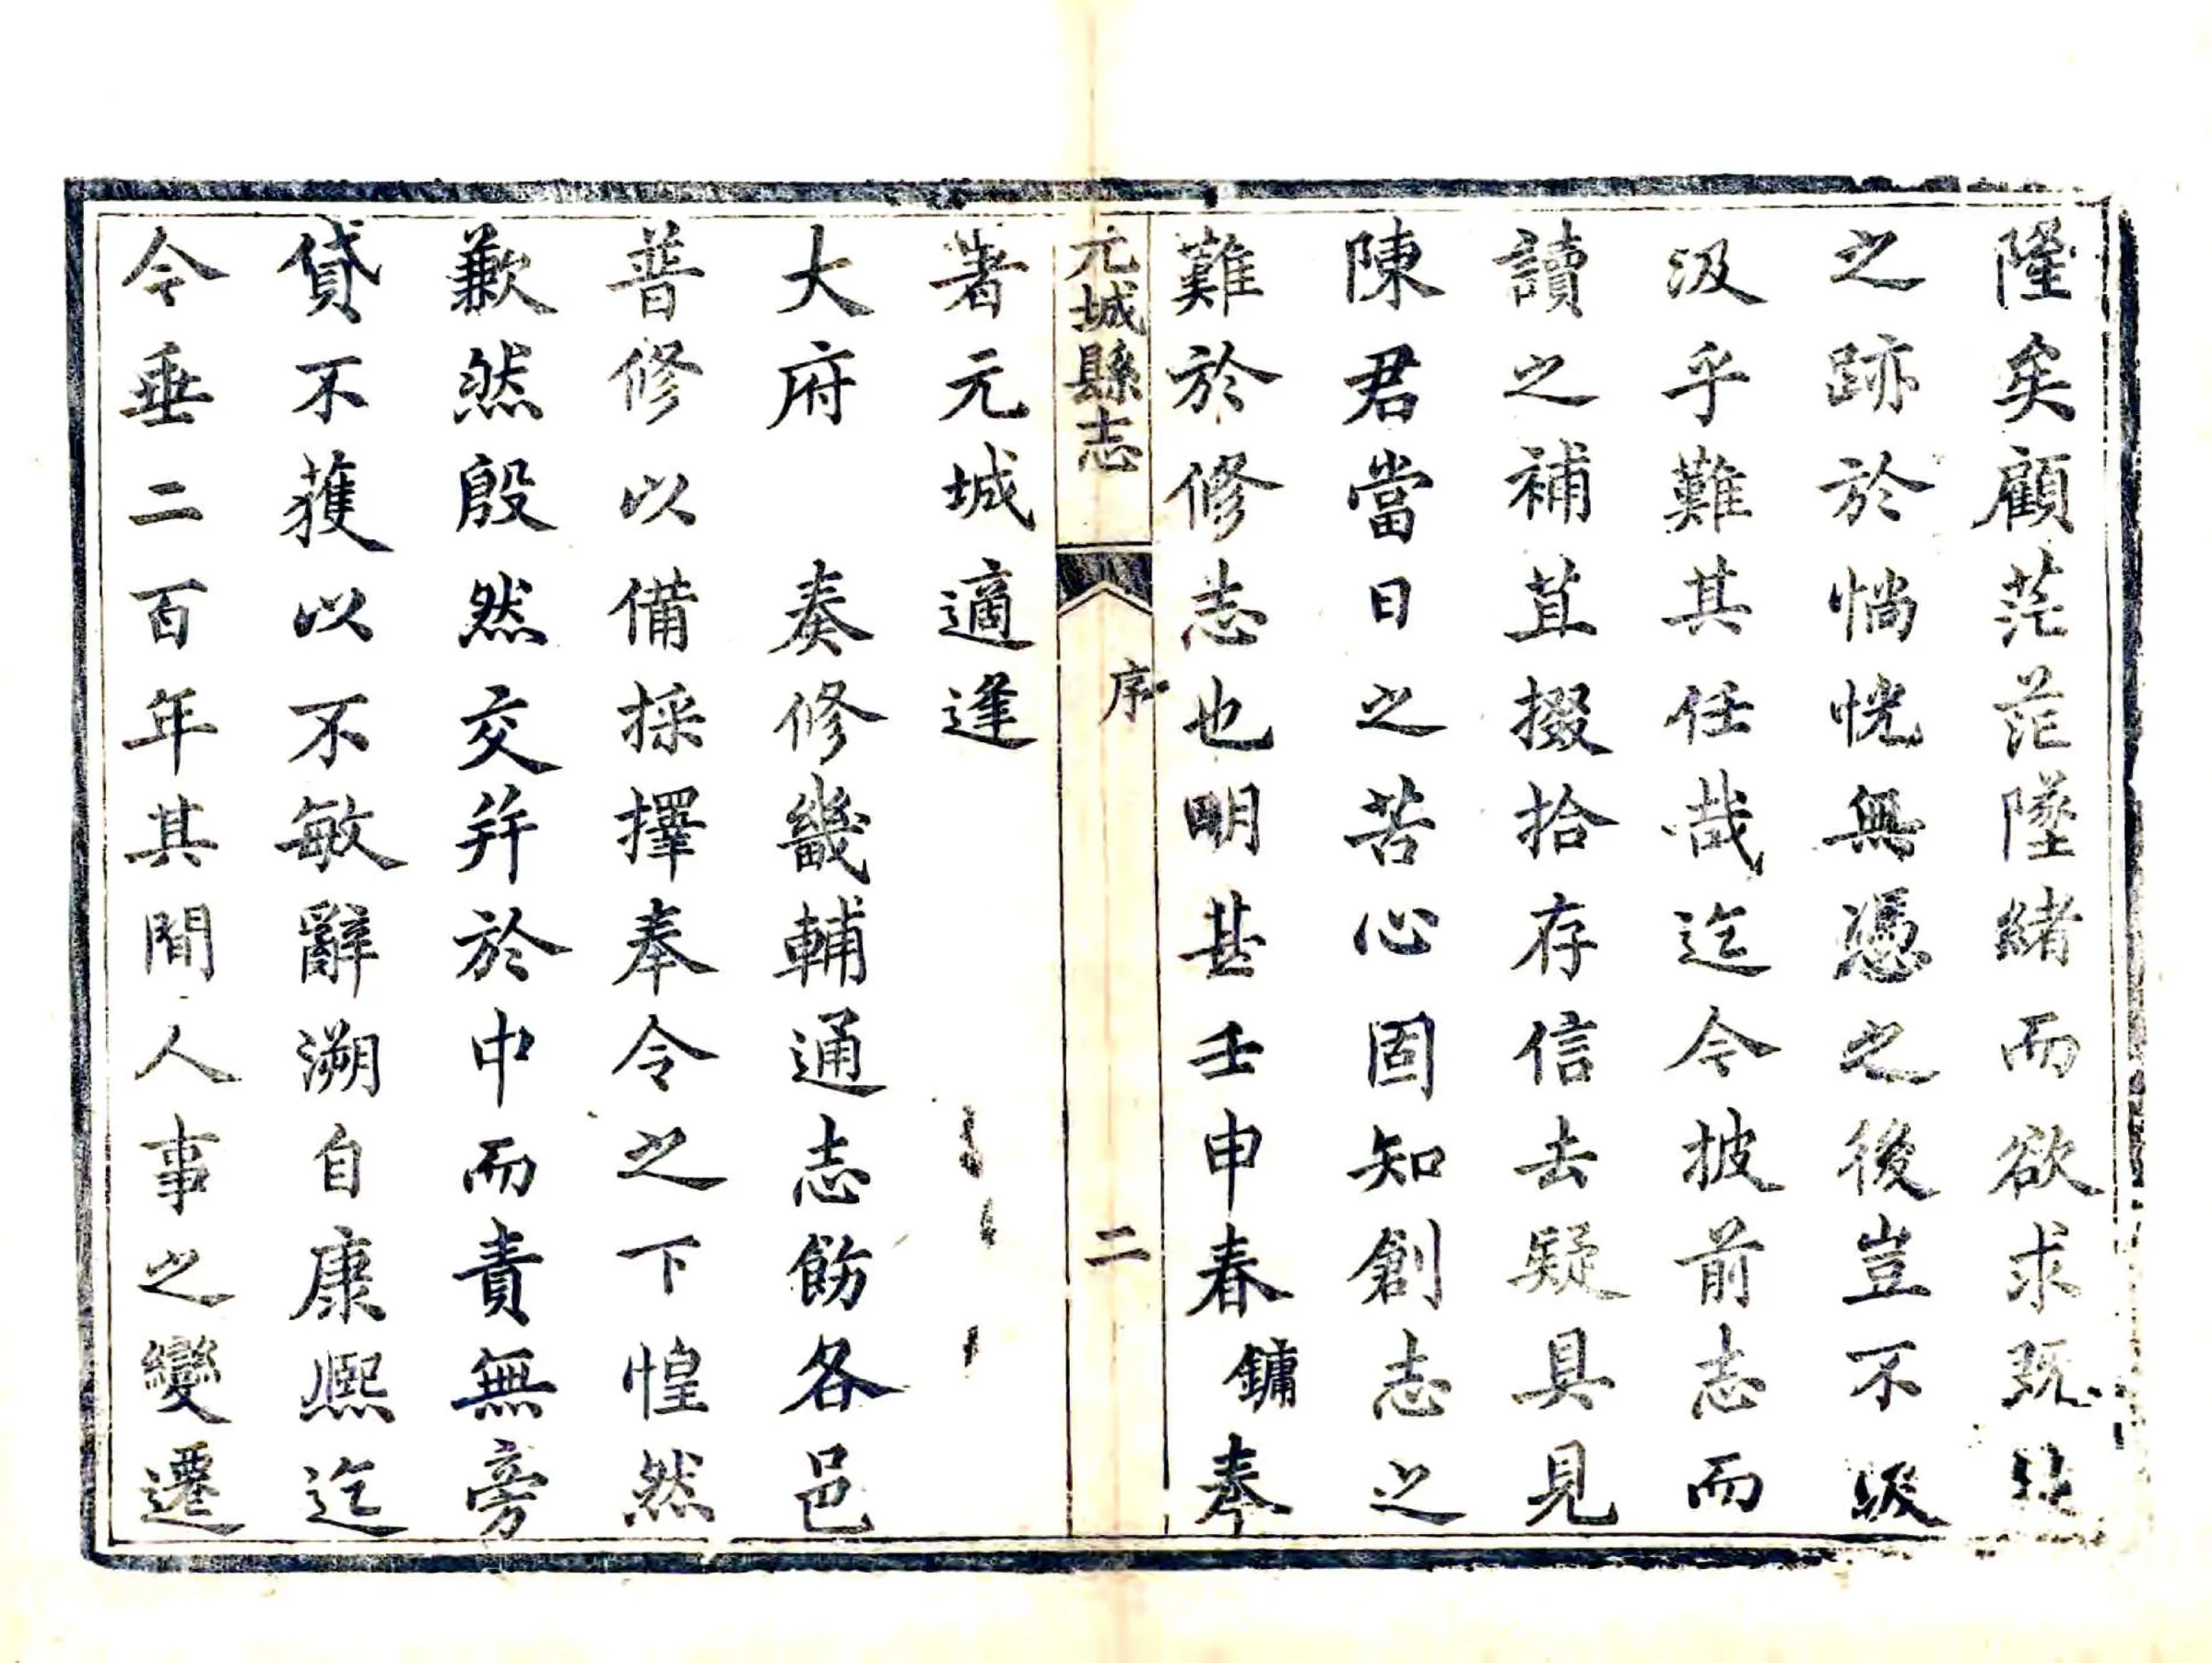 隆矣顧茫茫墜緒而欲求既
之跡於惝恍無憑之後豈不岌
汲乎難其任哉迄今披前志而
讀之補苴掇拾存信去疑具見
陳君當日之苦心固知創志之
難於修志也明甚壬申春鏞奉
元城縣志
序
二
著元城適逢
大府 奏修畿輔通志飭各邑
普修以備採擇奉令之下惶然
歉然殷然交并於中而責無旁
貸不獲以不敏辭溯自康熙迄
今垂二百年其間人事之變遷